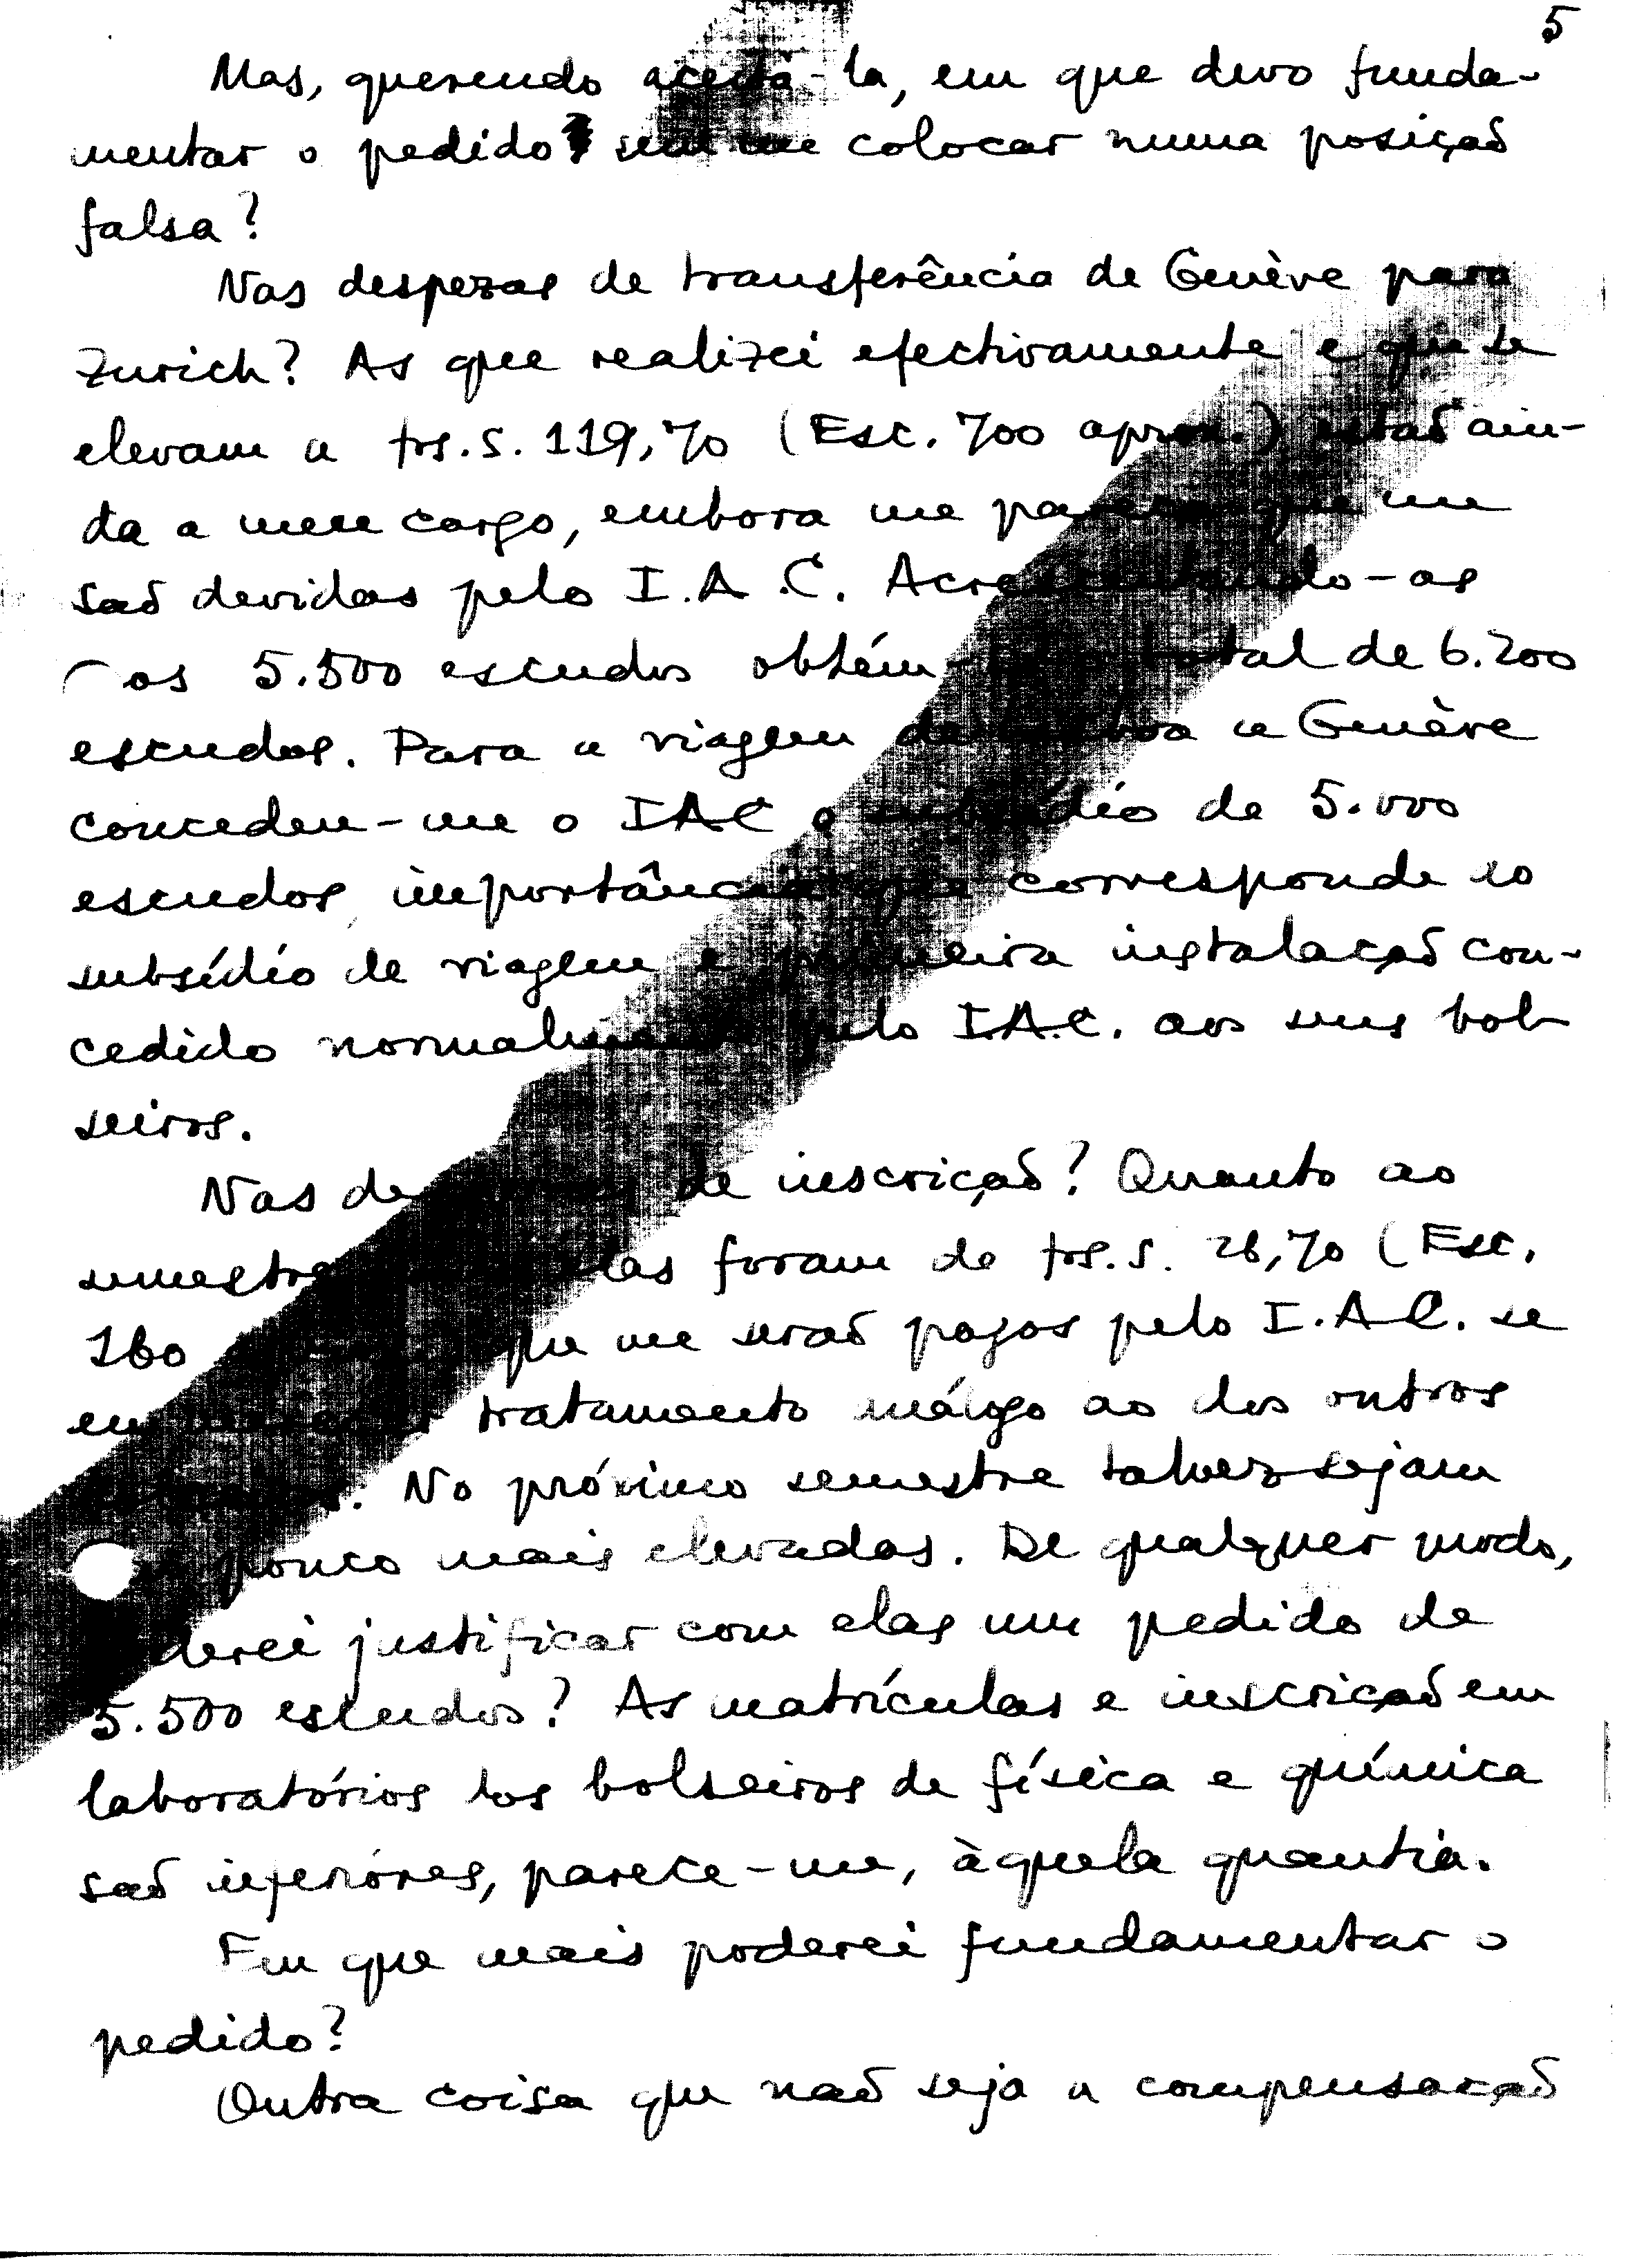 5
Mas, querendo aceitá-la, em que devo funda-
mentar o pedido sem me colocar numa posição
falsa?
Nas despezas de transferência de Genève para
Zurich? As que realizei efectivamente e que se
elevam a frs.s. 119,70 (Esc. 700 aprox.) estão ain-
da a meu cargo, embora me pareça que me
são devidas pelo I.A.C. Acrescentando-as
aos 5.500 escudos obtém- total de 6.200
escudos. Para a viagem de Lisboa a Genève
concedeu-me o IAC o subsídio de 5.000
escudos, importância que corresponde ao
subsídio de viagem e primeira instalação con-
cedido normalmente pelo I.A.C. aos seus bol-
seiros.
Nas despezas de inscrição? Quanto ao
semestre elas foram de frs.s. 26,70 (Esc.
160 que me serão pagos pelo I.A.C. se
eu tratamento análogo ao dos outros
. No próximo semestre talvez sejam
pouco mais elevadas. De qualquer modo,
poderei justificar com elas um pedido de
5.500 escudos? As matrículas e inscrição em
laboratórios dos bolseiros de física e química
são inferiores, parece-me, àquela quantia.
Em que mais poderei fundamentar o
pedido?
Outra coisa que não seja a compensação